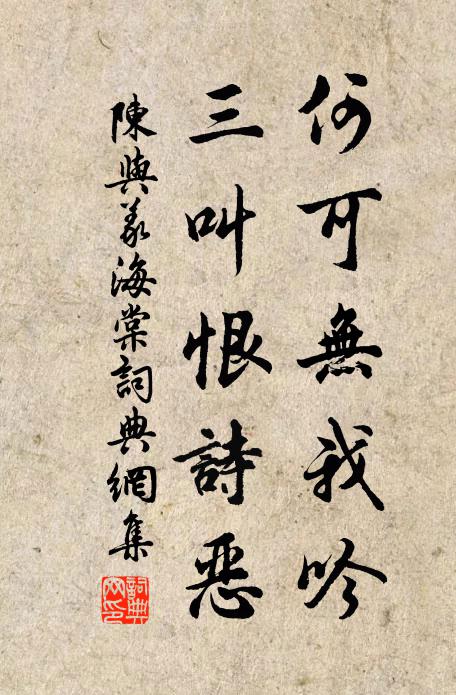 何可無我吟
三叫恨詩惡
陳與義海棠詞典網集
詞典網印